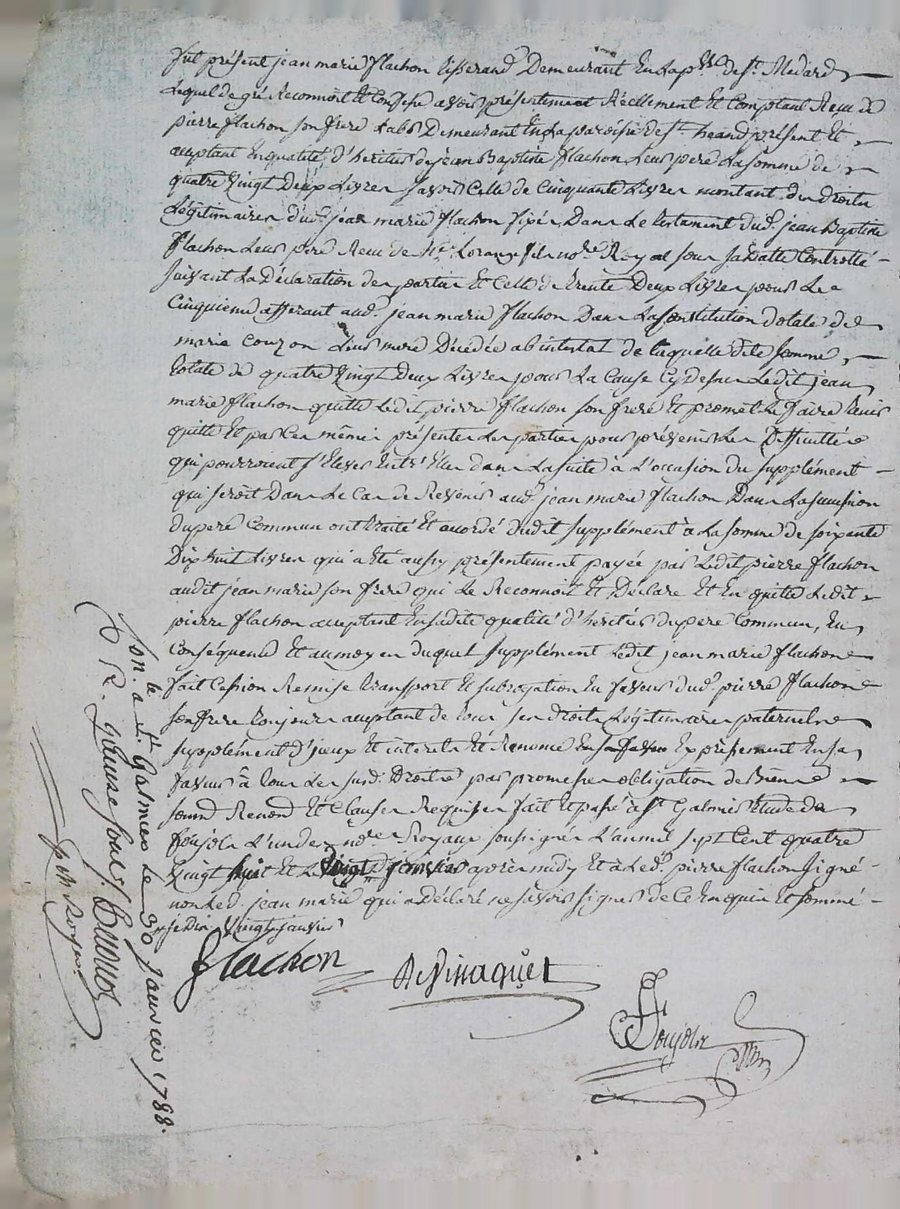 fut présent jean marie flachon tisserand Demeurant En la p.sse de St. Medard
Lequel de gré Reconnoit et Confesse avoir présentement Réellement Et Comptant Reçu de
pierre flachon son frere Demeurant En La paroisse de St. présent Et
acceptant En qualité d'heritier de jean Baptiste flachon Leur pere La somme de
quatre Vingt Deux Livres savoir Celle de Cinquante Livres montant des Droits
Légitimaires dud. jean marie flachon fixés Dans Le testament dud. jean Baptiste
flachon Leur pere Recu de no.re Royal sous sa Datte Controllé
suivant La Déclaration des parties Et Celle de trente Deux Livres pour Le
Cinquieme afferant aud. jean marie flachon Dans La Constitution dotale de
marie couzon Leur mere Décédée ab intestat de laquelle dite somme
totale de quatre Vingt Deux Livres pour La Cause Cy dessus Ledit jean
marie flachon quitte Ledit pierre flachon son frere Et promet Le faire tenir
quitte Et par Ces mêmes présentes Les parties pour prévenir Les Difficultés
qui pourroient s'Elever Entr'Elles dans La suite à L'occasion du supplément
qui seroit Dans Le Cas de Revenir aud. jean marie flachon Dans La succession
du pere Commun ont traité Et accordé dudit supplément à La somme de soixante
Dix huit Livres qui a Eté aussy présentement payée par Ledit pierre flachon
audit jean marie son frere qui Le Reconnoit Et Déclare Et En quitte Ledit
pierre flachon acceptant En sadite qualité d'héritier du pere Commun, En
Conséquence Et au moyen duquel supplément Ledit jean marie flachon
fait Cession Remise transport Et subrogation En faveur dud. pierre flachon
son frere toujours acceptant de tous ses droits Légitimaires paternels
supplément d'iceux Et interets Et Renonce En sa faveur Expressement En sa
faveur à tous Les susd. Droits par promesses obligation de Biens
soumd Renond Et Clauses Requises fait Et passé à St. Galmier Etude de
foujols L'un des nores Royaux soussignés L'an mil sept Cent quatre
Vingt huit Et Le Vingt janvier après midy Et à Led. pierre flachon signé
non Led. jean marie qui a Déclaré ne savoir signer de Ce Enquis et sommé
Vingt janvier
flachon
foujols
Con. le
a St. Galmier Le 30 Janvier 1788.
R. sous